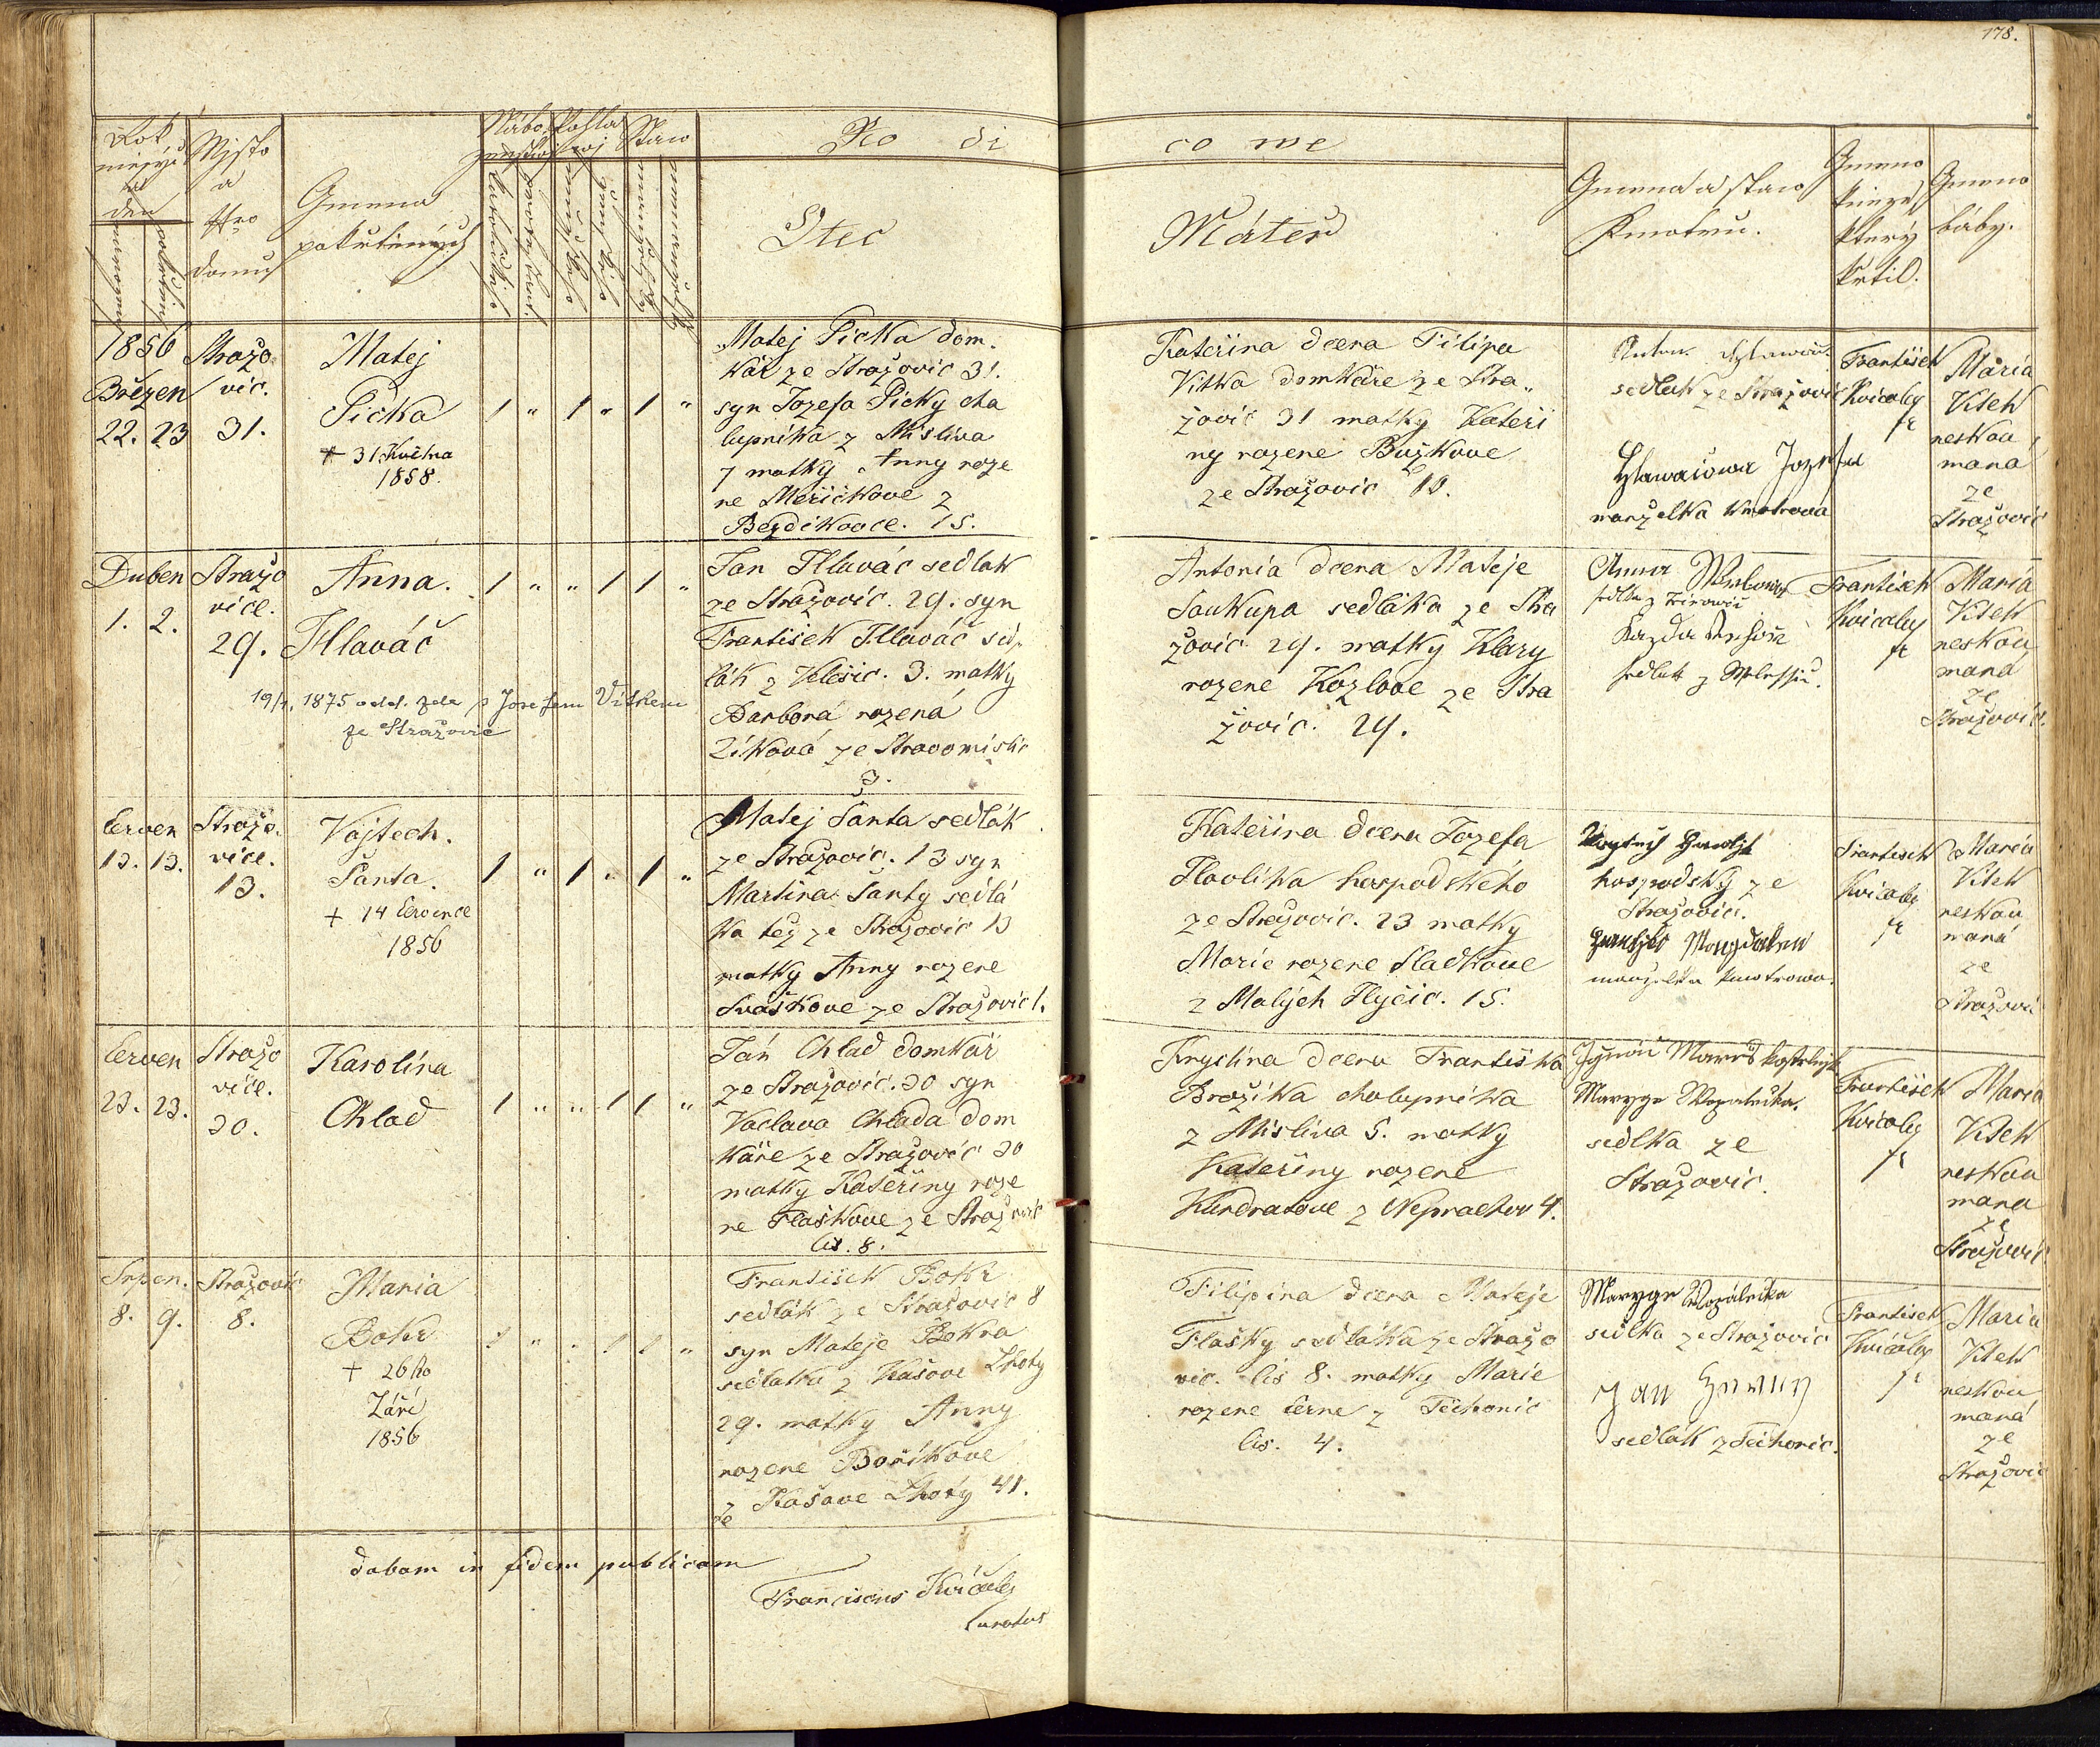 178.
Rok
měsýc
a
den
narození
pokřtění
Mjsto
a
Nro
domu
Gmeno
pokřtěných
Nábo
ženstwj
Pohla
wj
Staw
Ro di
co we
Otec
Máteř
Gmena a staw
Kmotrů.
Gmeno
kněze
který
křtil.
Gmeno
báby.
1856
Březen
22. 23
Stražo
vic.
31.
Matej
Picka
+ 31. Května
1858.
1 " 1 " 1 "
Matej Picka dom.
kář ze Stražovic 31.
syn Jozefa Picky cha
lupníka z Mislíva
7 matky Anny roze
ne Meřičkove z
Bezdikovce. 15.
Kateřina dcera Filipa
Vitka domkáře ze Stra„
žovic 31 matky Kateři
ny rozene Buzkove
ze Stražovic 10.
sedlak ze Stražovic
Hlawačowa Jozefa
manzelka kmotrova
František
Kvicaly
fr
Maria
Vitek
neskou
maná
ze
Stražovic
Duben
1. 2.
Stražo
vice.
29.
Anna.
Hlaváč
1 " " 1 1 "
19/1. 1875 odd. zde s Josefem Vítkem
ze Stražovic
Jan Hlaváč sedlak
ze Stražovic. 29. syn
František Hlaváč sed„
lák z Velešic. 3. matky
Barbora rozená
Zíková ze Stravomislic
3.
Antonia dcera Mateje
Soukupa sedláka ze Stra
žovic. 29. matky Klary
rozene Kozlove ze Stra
žovic. 29.
Anna
František
Kvicaly
fr
Maria
Vitek
neskou
maná
ze
Stražovic.
Červen
13. 13.
Stražo.
vice.
13.
Vojtech.
Šanta.
+ 14 Července
1856
1 " 1 " 1 "
Matej Šanta sedlák
ze Stražovic. 13 syn
Martina Šanty sedlá
ka tež ze Stražovic 13
matky Anny rozene
Svaškove ze Stražovic 1.
Kateřina dcera Jozefa
Havlika hospodského
ze Stražovic. 23 matky
Marie rozene Sladkove
z Malých Hyčic. 15.
hospodský ze
Stražovic.
manzelka kmotrowa.
František
Kvicaly
fr
Maria
Vitek
neskou
maná
ze
Stražovic
Červen
23. 23.
Stražo
vice.
30.
Karolina
Chlad
1 " " 1 1 "
Ján Chlad domkář
ze Stražovic. 30 syn
Vaclava Chlada dom
káře ze Stražovic 30
matky Kateřiny roze
ne Flaškove ze Stražovic
čis. 8.
Krystina dcera Františka
Brožíka chalupníka
z Mislíva 5. matky
Kateřiny rozene
Kundratove z Neprachov 4.
sedlka ze
Stražovic.
František
Kvicaly
fr
Maria
Vitek
neskou
mana
ze
Stražovic.
Srpen.
8. 9.
Stražovic
8.
Maria
Bokr
+ 26ho
Září
1856
1 " " 1 1 "
František Bokr
sedlák ze Stražovic 8
syn Mateje Bokra
sedlaka z Kašove Lhoty
29. matky Anny
rozene Boříkove
z Kašove Lhoty 41.
Filipina dcera Mateje
Flašky sedláka ze Stražo
vic. čis 8. matky Marie
rozene Černe z Těchonic
čis. 4.
sedlka ze Stražovic
Jan
sedlák z Techonic.
František
Kvičaly
fr
Maria
Vitek
neskou
maná
ze
Stražovic
dabam in fidem publicam
Franciscus Kvičaly
Curatus